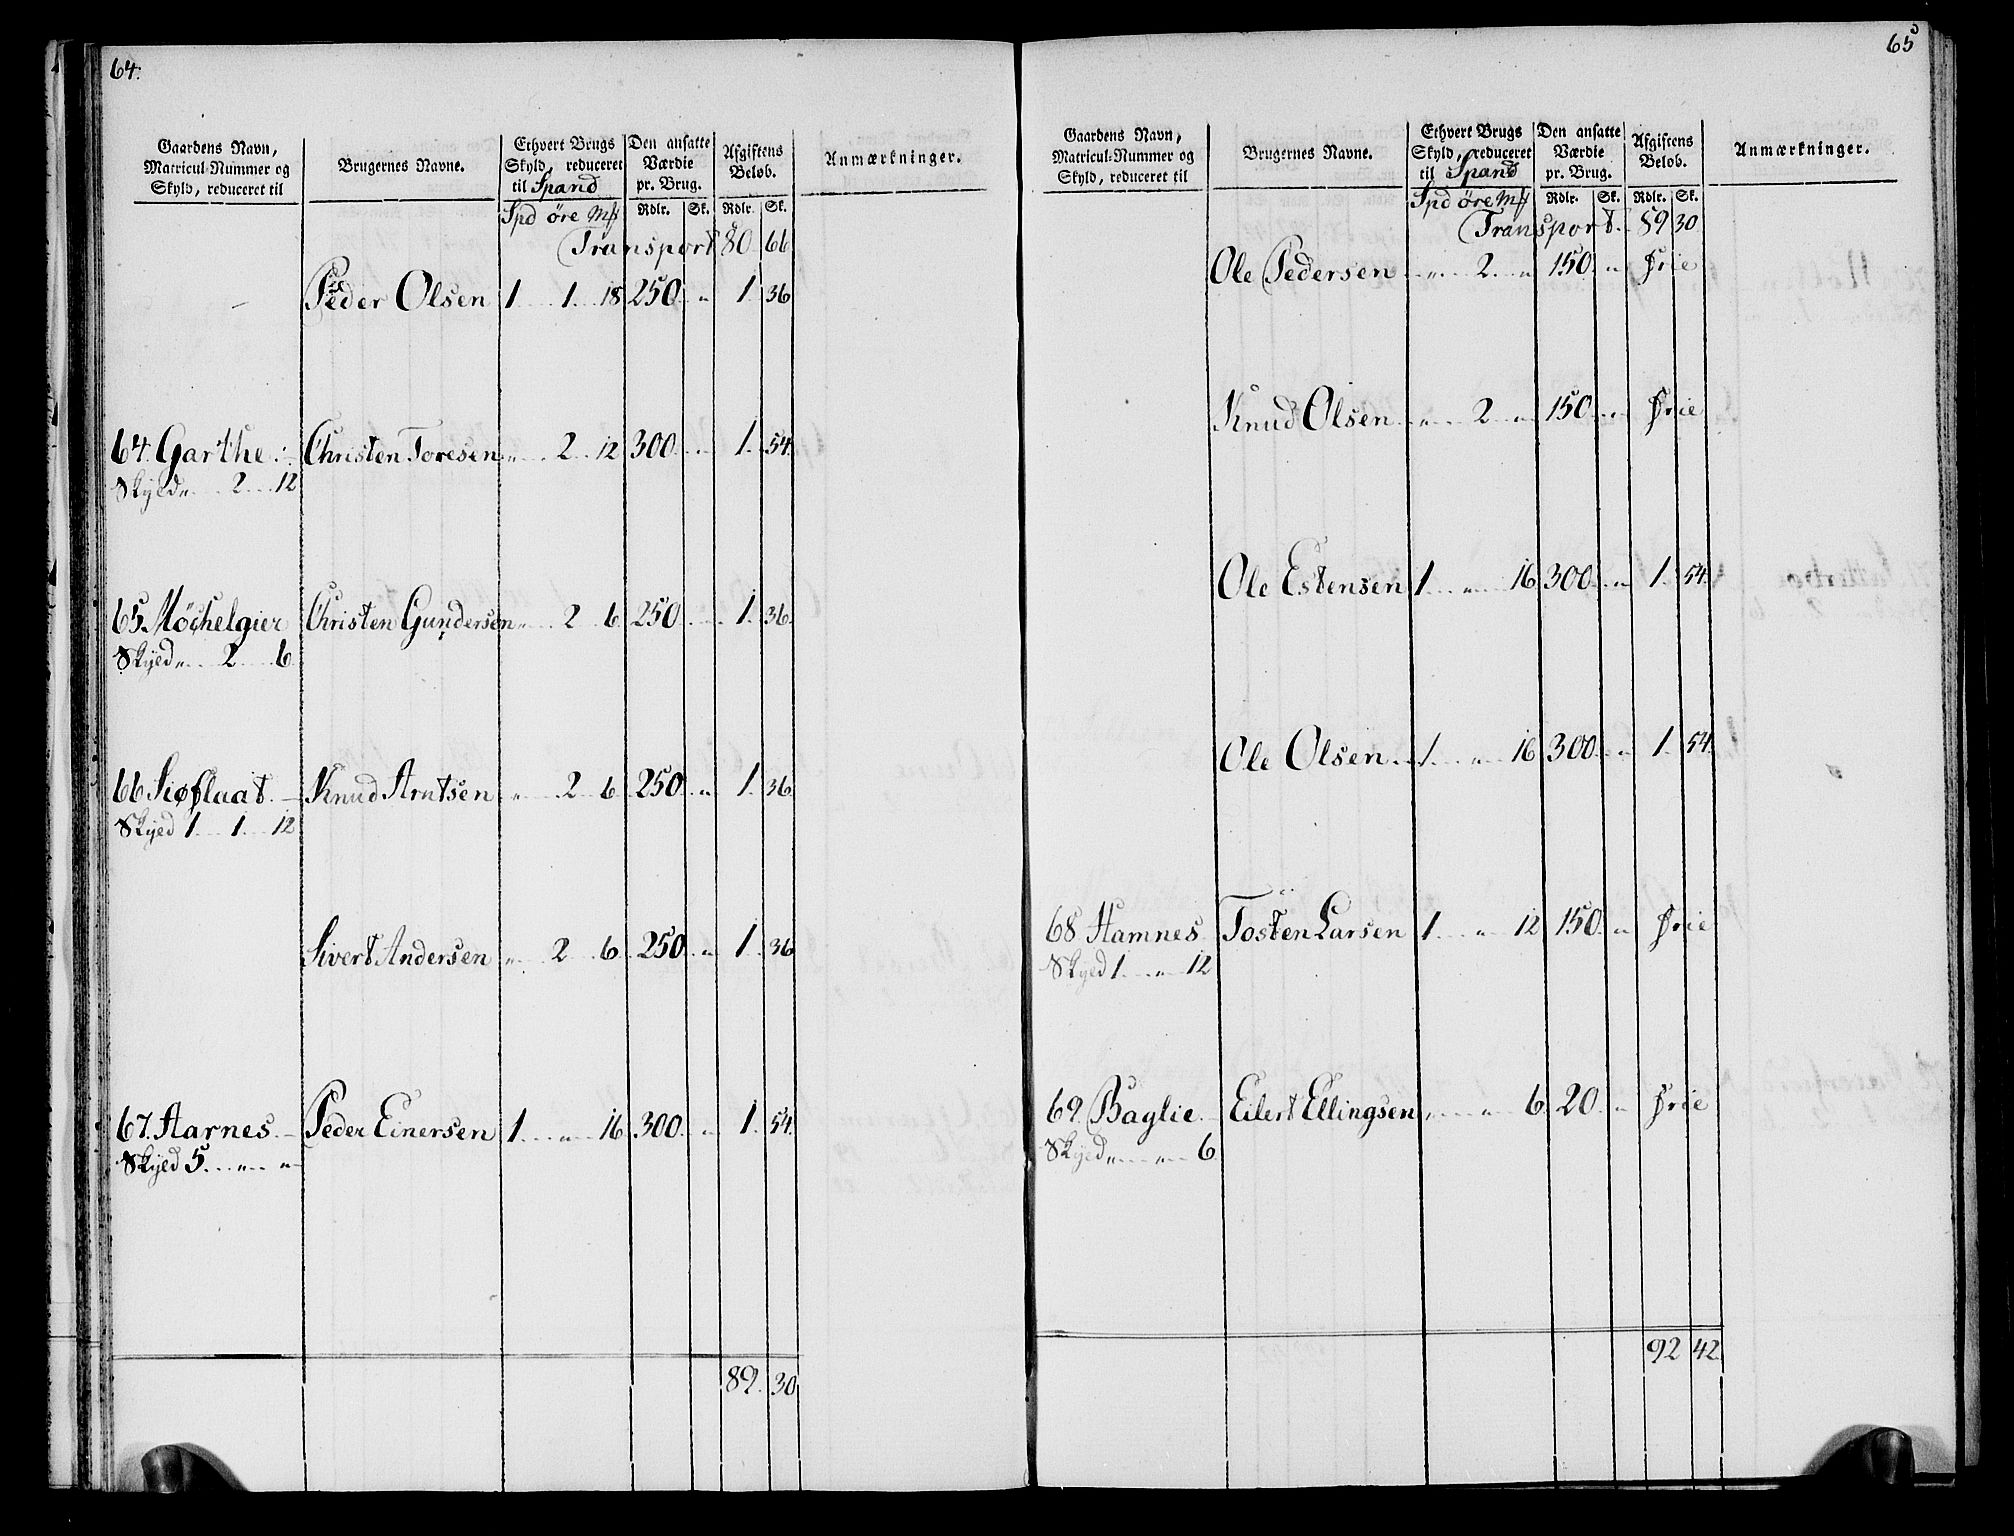 64.
Gaardens Navn, Matricul-Nummer og Skyld, reduceret til | Brugernes Navne. | Ethvert Brugs Skyld, reduceret til Spand | Den ansatte Værdie pr. Brug. | Afgiftens Beløb. | Anmærkninger.
Spd øre Mk | Rdlr. | Sk. | Rdlr. | Sk.
Transport 80 66
Peder Olsen 1 . 1 . 18 250 " 1 36
64. Garthe :- Christen Toresen " . 2 . 12 300 . . 1 . 54
Skyld " . 2 . 12
65. Møchelgier Christen Gundersen " . 2 . 6 250 . . 1 . 36
Skyld " . 2 . 6
66 Siøflaat. - Knud Arntsen " . 2 . 6 250 " 1 36
Skyld 1 . 1 . 12
Sivert Andersen " . 2 . 6 250 " 1 36
67. Aarnes. - Peder Einersen 1 . " . 16 300 " 1 . 54
Skyld 5 . " . "
89. 30
65
Gaardens Navn, Matricul-Nummer og Skyld, reduceret til | Brugernes Navne. | Ethvert Brugs Skyld, reduceret til Spand | Den ansatte Værdie pr. Brug. | Afgiftens Beløb. | Anmærkninger.
Spd øre Mk | Rdlr. | Sk. | Rdlr. | Sk.
Transport. 89 30
Ole Pedersen . " . 2 . " 150 " frie
Knud Olsen . " . 2 . " 150 . " frie
Ole Estensen 1 . " . 16 300 . " 1 . 54
Ole Olsen . 1 . " . 16 300 . " 1 . 54
68 Hamnes Tosten Larsen 1 . " . 12 150 . " frie
Skyld 1 . " . 12
69. Baglie . Eilert Ellingsen " . " . 6 20 . " frie
Skyld " . " . 6
92 42